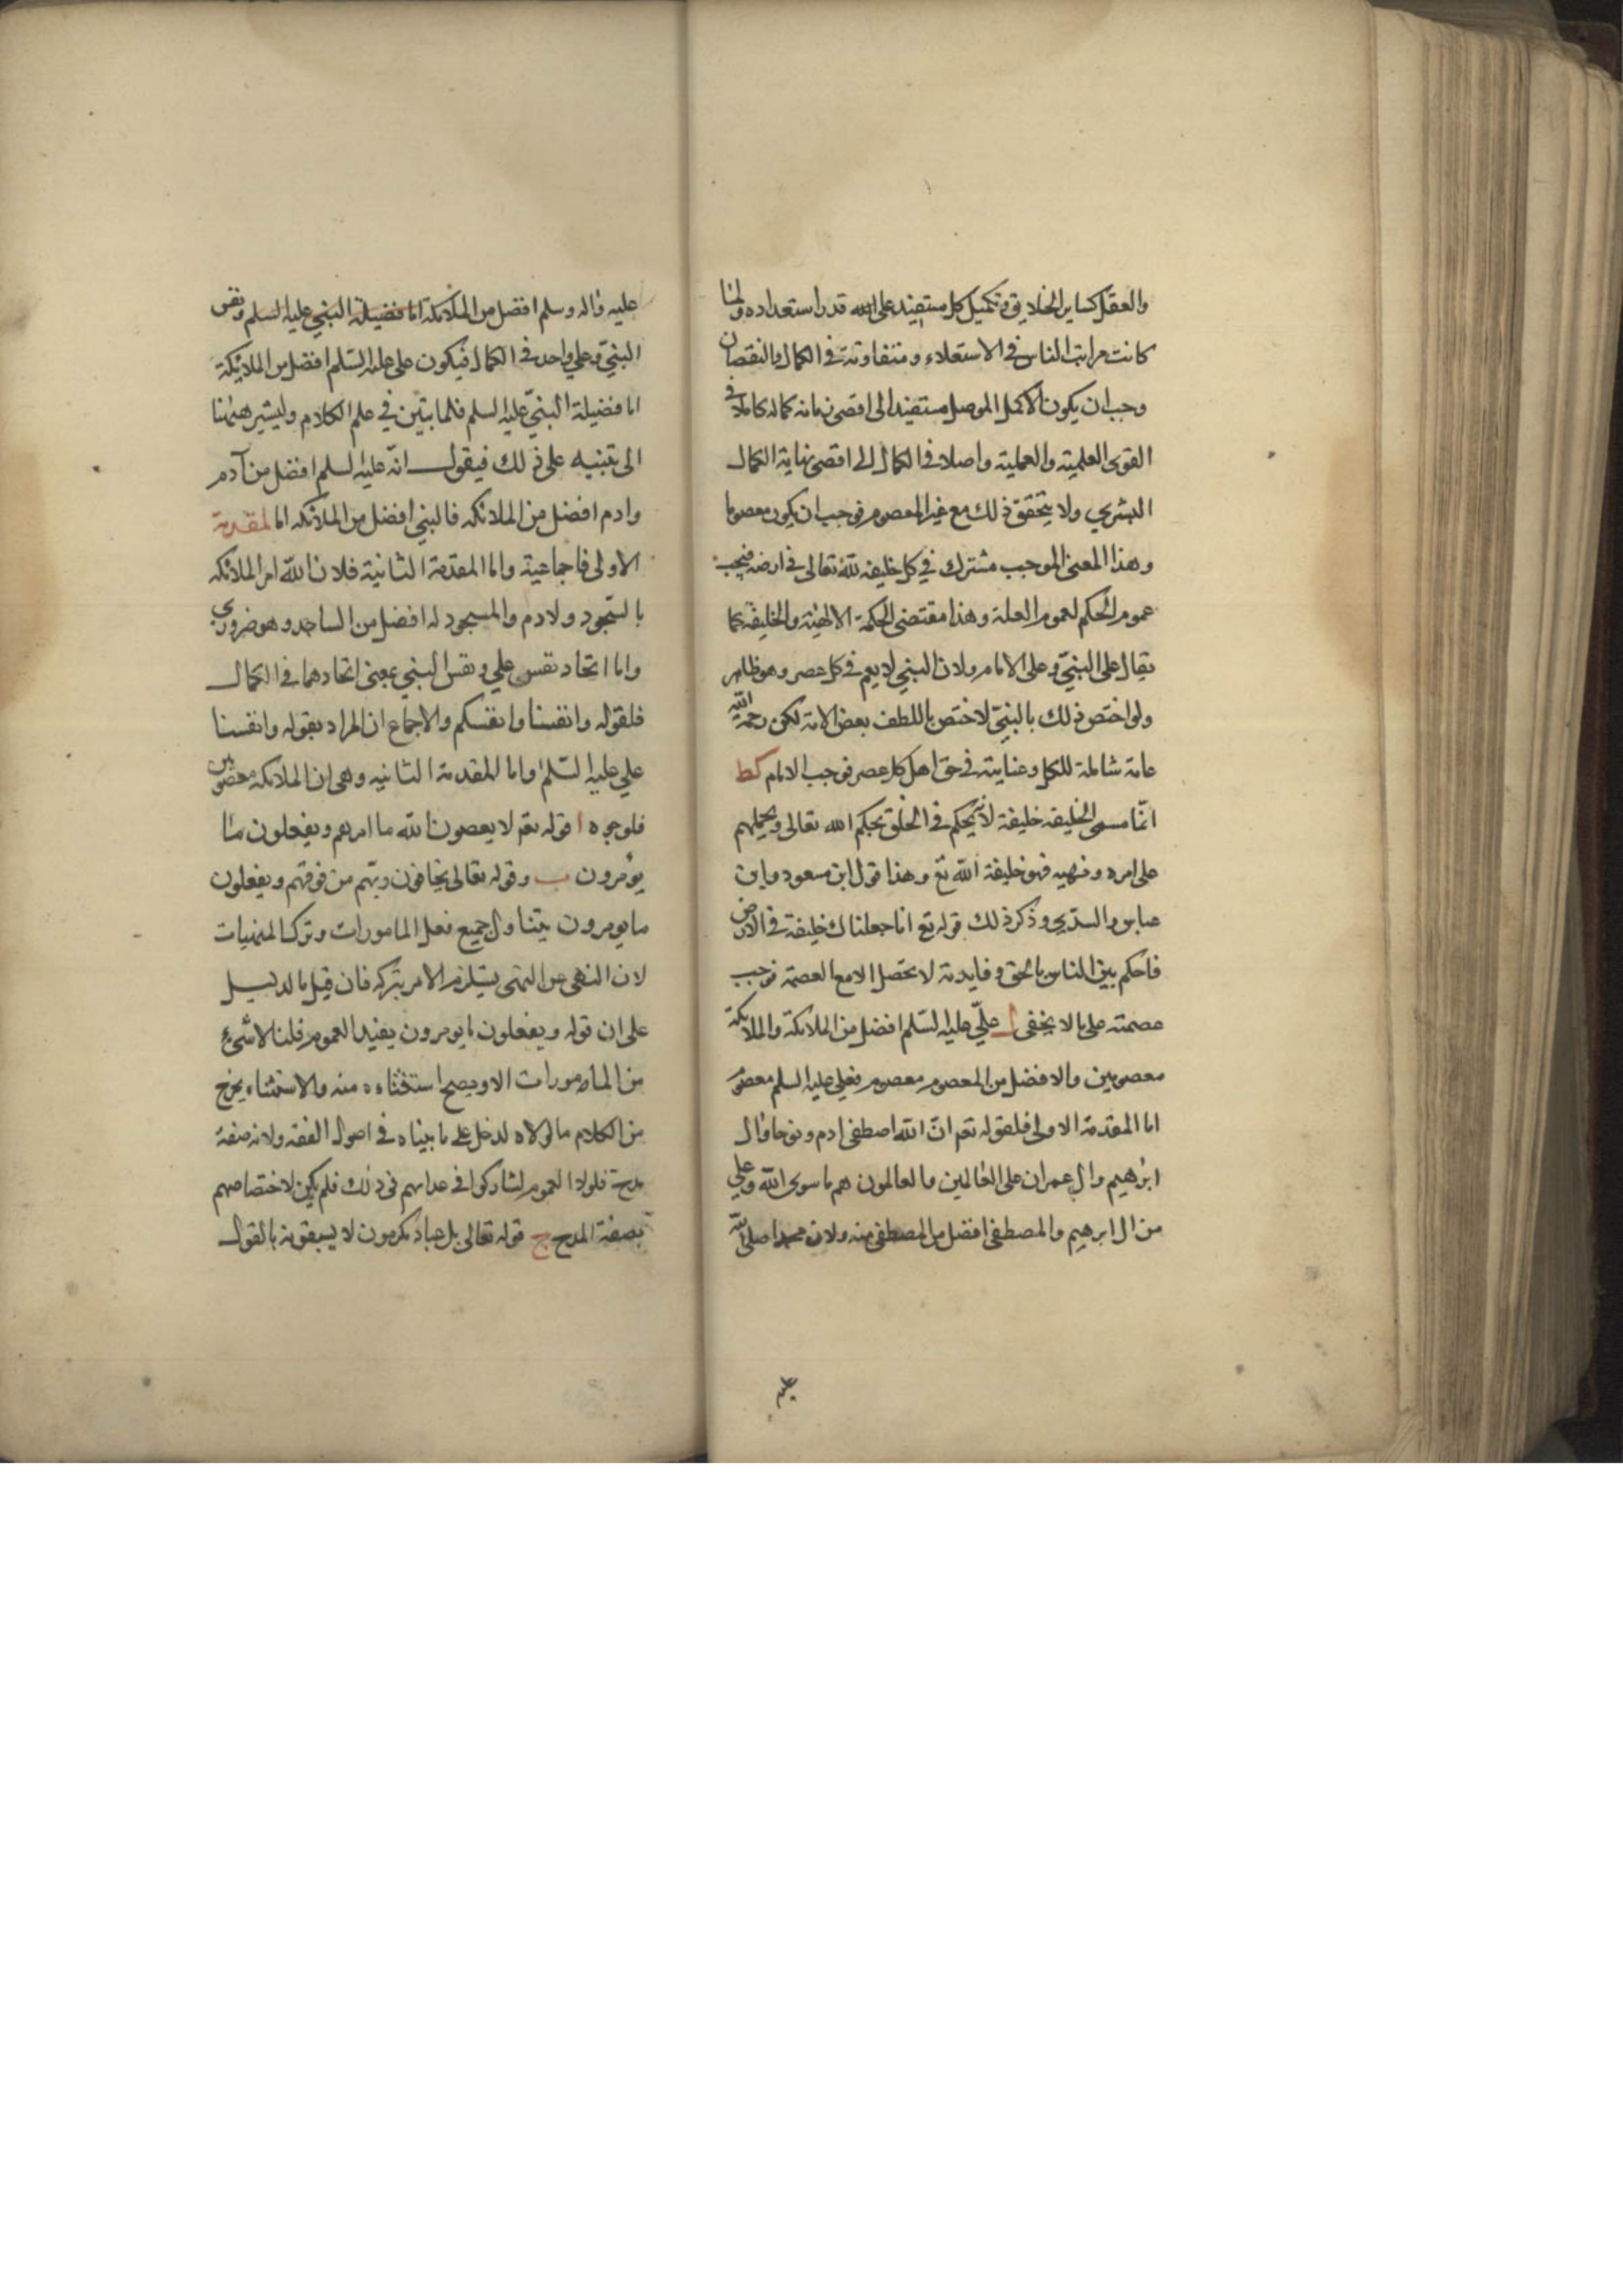 والعقل كساير الخلايق وتكميل كل مستفيد على قدر استعداده ولما
كانت مراتب الناس في الاستعلاء ومتفاوتة في الكمال والنقصان
وجب ان يكون الاكمل الموصل مستفيد الى اقصى نهاية كماله كاملا في
القوى العلمية والعملية واصلا في الكمال الى اقصى نهاية الكمال
البشري ولا يتحقق ذلك مع غير المعصوم فوجب ان يكون معصوما
وهذا المعنى الموجب مشترك في كل خليفه لله تعالى في ارضه فيجب
عموم الحكم لعموم العلة وهذا مقتضى الحكمة الالهية والخليفة كما
يقال على النبي وعلى الامام ولان النبي لا يعم في كل عصر وهو ظاهر
ولو اختص ذلك بالنبي لاختص باللطف بعض الامة لكن رحمة الله
عامة شاملة للكل وعنايته في حق اهل كل عصر فوجب الامام كط
انما سمى الخليفه خليفة لانه يحكم في الخلق بحكم الله تعالى ويحملهم
على امره ونهيه فهو خليفة الله تع وهذا قول ابن مسعود وابن
عباس والسدي وذكر ذلك قوله تع انا جعلناك خليفة في الارض
فاحكم بين الناس بالحق وفايدته لا يحصل الا مع العصمة فوجب
عصمته على ما لا يخفى ل علي عليه السلم افضل من الملائكة والملايكة
معصومين والافضل من المعصوم معصوم فعلي عليه السلم معصوم
اما المقدمة الاولى فلقوله تعم ان الله اصطفى ادم ونوحا وال
ابرهيم وال عمران على العالمين والعالمون هم ما سوى الله وعلي
من ال ابرهيم والمصطفى افضل من المصطفى منه ولان محمدا صلى الله
عليه
عليه واله وسلم افضل من الملائكة اما فضيلة النبي عليه السلم ونفس
النبي وعلي واحد في الكمال فيكون على عليه السلم افضل من الملائكة
اما فضيلة النبي عليه السلم فلما تبين في علم الكلام وليشير ههنا
الى تنبيه على ذلك فيقول انه عليه السلم افضل من آدم
وادم افضل من الملائكه فالنبي افضل من الملائكه اما المقدمة
الاولى فاجماعية واما المقدمة الثانية فلان الله امر الملائكه
بالسجود ولادم والمسجود له افضل من الساجد وهو ضروري
واما اتحاد نفس علي ونفس النبي بمعنى اتحادهما في الكمال
فلقوله وانفسنا وانفسكم والاجماع ان المراد بقوله وانفسنا
علي عليه السلم واما المقدمة الثانيه وهي ان الملائكه معصومين
فلوجوه ا قوله تعم لا يعصون الله ما امرهم ويفعلون ما
يؤمرون ب وقوله تعالى يخافون ربهم من فوقهم ويفعلون
ما يومرون يتناول جميع فعل المامورات وترك المنهيات
لان النهى عن النهى يستلزم الامر بتركه فان قيل ما الدليل
على ان قوله ويفعلون ما يومرون يفيد العموم قلنا لا شيء
من المامورات الا ويصح استثناءه منه والاستثناء يخرج
من الكلام ما لولاه لدخل على ما بيناه في اصول الفقه ولانه صفة
مدح فلولا العموم لشاركوا في عداهم في ذلك فلم يكن لاختصاصهم
بصفة المدح ج قوله تعالى بل عباد مكرمون لا يسبقونه بالقول